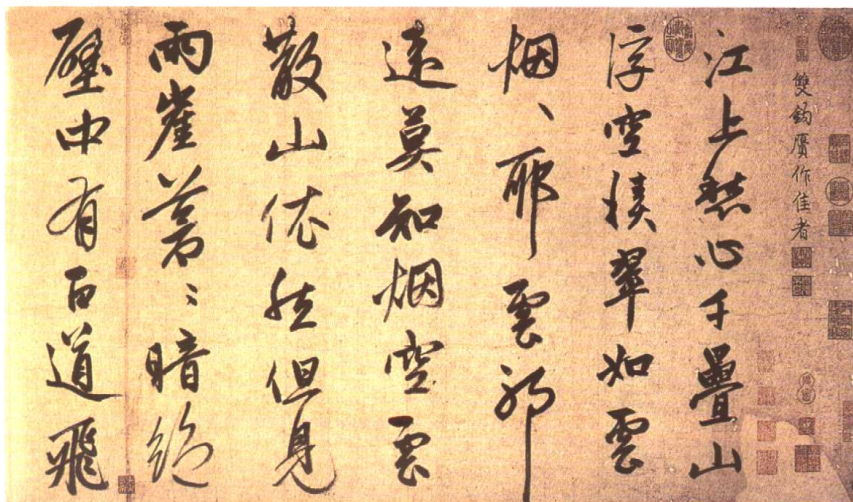 雙鈎贋作佳者
江上愁心千疊山
浮空積翠如雲
烟、耶雲邪
遠莫知烟空雲
散山依然但見
兩崖蒼〻暗絶
壁中有百道飛